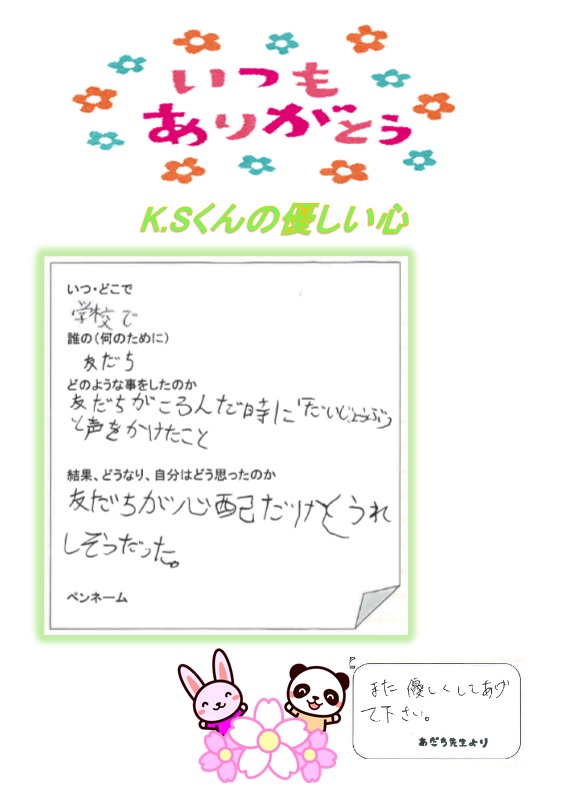 いつも
ありがとう
K.Sくんの優しい心
いつ・どこで
学校で
誰の(何のために)
友だち
どのような事をしたのか
友だちがころんだ時に「だいじょうぶ」
と声をかけたこと
結果、どうなり、自分はどう思ったのか
友だちが心配だけどうれ
しそうだった。
ペンネーム
また優しくしてあげ
て下さい。
あだち先生より